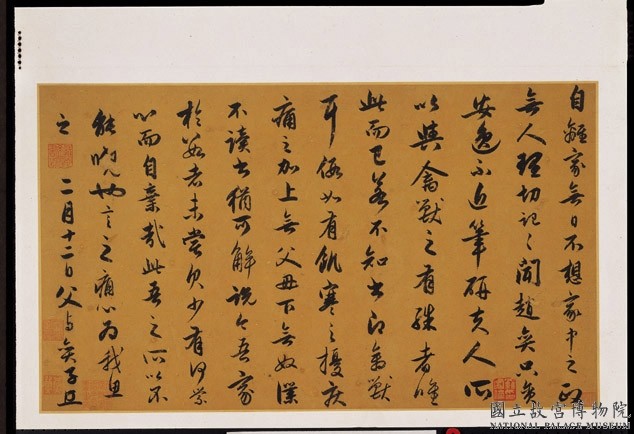 自離家無日不想家中之
無人理切記〻聞趙奕只貪
安逸不近筆研夫人所
以與禽獸之有殊者唯
此而已若不知書即禽獸
耳假如有飢寒之擾疾
痛之加上無父母下無奴僕
不讀書猶可解說今吾家
於數者未嘗欠少有何縈
心而自棄哉此吾之所以不
能言之痛心為我思
之 二月十二日父与奕子
國立故宮博物院
NATIONAL PALACE MUSEUM